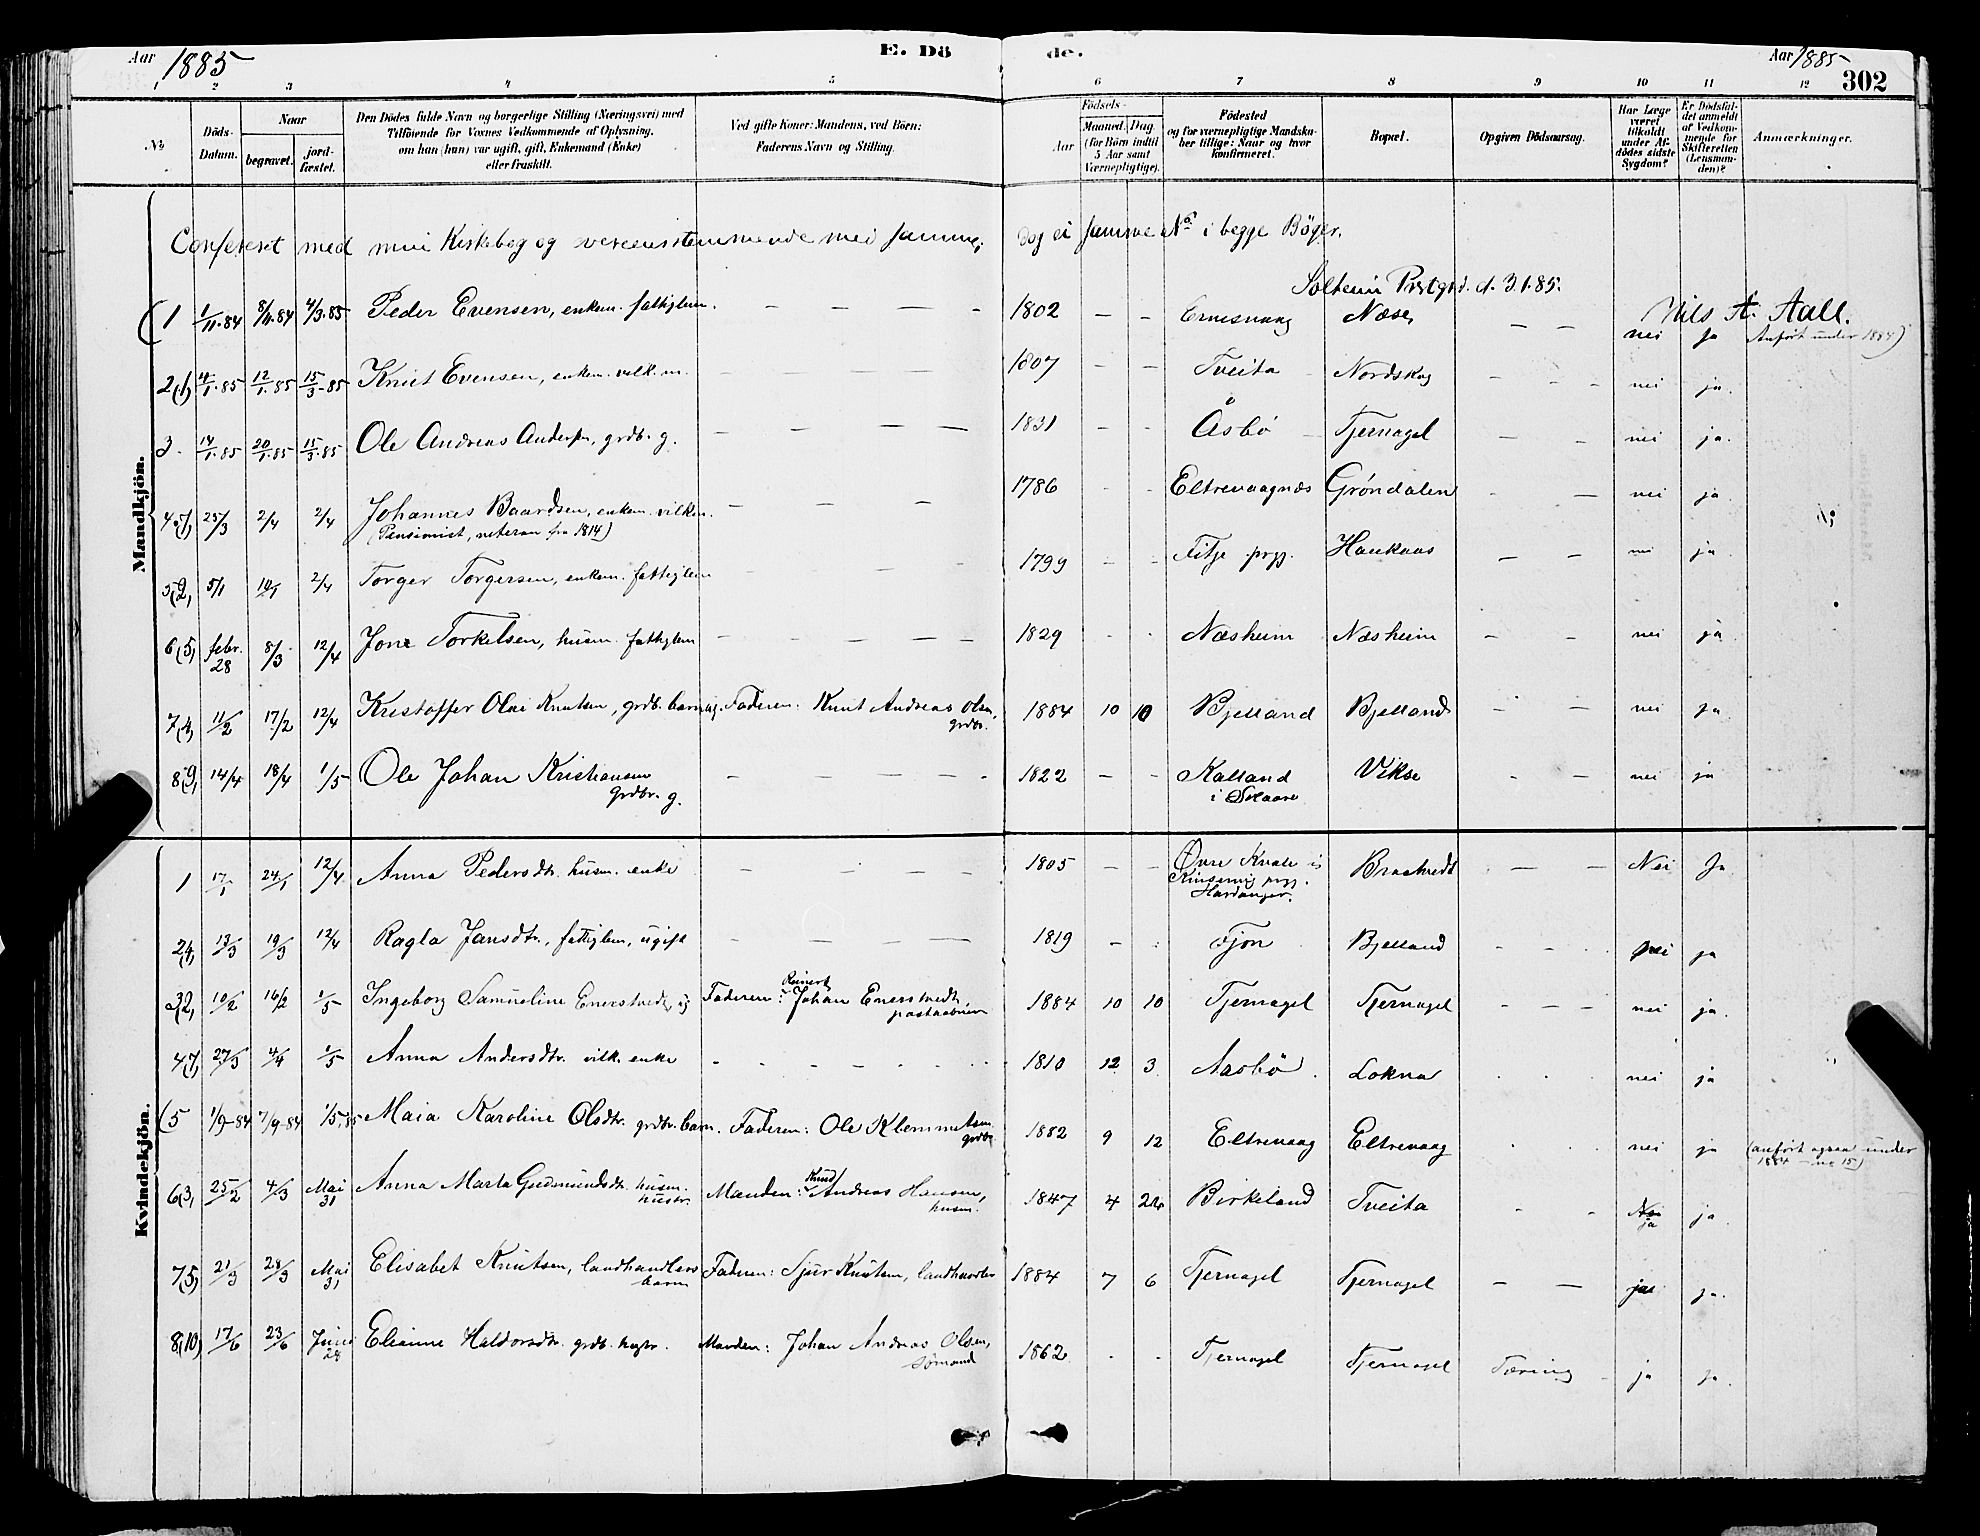 Aar 1885
E. Dö
de.
Aar 1885
302
1 2 3 4 5 6 7 8 9 10 11 12
No.
Döds-Datum.
Naar
begravet.
jord-fæstet.
Den Dödes fulde Navn og borgerlige Stilling (Næringsvei) med
Tilföiende for Voxnes Vedkommende af Oplysning,
om han (hun) var ugift, gift, Enkemand (Enke)
eller fraskilt.
Ved gifte Koner: Mandens, ved Börn:
Faderens Navn og Stilling.
Födsels-
Aar
Maaned. Dag.
(for Börn indtil
5 Aar samt
Værnepligtige).
Födested
og for værnepligtige Mandska-
ber tillige: Naar og hvor
konfirmeret.
Bopæl.
Opgiven Dödsaarsag.
Har Læge
været
tilkaldt
under Af-
dödes sidste
Sygdom?
Er Dödsfal-
det anmeldt
af Vedkom-
mende for
Skifteretten
(Lensman-
den)?
Anmærkninger.
Mandkjön.
Confereret med min Kirkebog og overeensstemmende med samme, dog ei samme No. i begge Böger.
Prstgrd. d. 3.1.85.
Nils A. Aall.
(1 1/11.84 8/11.84 4/3.85 Peder Evensen, enkem. fattiglem. — — — — 1802 — — Ernesvaag Næse — — nei ja Anført under 1884)
2(1) 4/1.85 12/1.85 15/3-85 Knut Evensen, enkem. vilk.m. — — — — 1807 — — Tveita Nordskog — — nei ja.
3. 14/1.85 20/1.85 15/3.85 Ole Andreas Anderss., grdb. g. — — — — 1831 — — Åsbö Tjernagel — — nei ja.
4(7) 25/3 2/4 2/4 Johannes Baardsen, enkem. vilkm. — — — 1786 - - Eltrevaagnæs Gröndalen - — nei ja
(Pensionist, veteran fra 1814)
5(2) 5/1 10/1 2/4 Torger Torgersen, enkem. fattiglem — — — 1799 - - Fitje prgj. Haukaas — — nei ja
6(5) febr. 28 8/3 12/4 Jone Torkelsen, husm. fattiglem — — — — 1829 - - Næsheim Næsheim — — nei ja
7(4) 11/2 17/2 12/4 Kristoffer Olai Knutsen, grdb. barn ug. Faderen: Knut Andreas Olsen, grdbr. 1884 10 10 Bjelland Bjelland — — nei ja
8(9) 14/4 18/4 1/5 Ole Johan Kristiansen — — — — 1822 — - Kalland Vikse - - nei ja
grdbr. g. i
Kvindekjön.
1 17/1 24/1 12/4 Anna Pedersdtr. husm. enke — — — — 1805 — — Övre Kvale i Braatvedt — — Nei Ja
Kinservig prgj.
Hardanger.
2(4) 13/3 19/3 12/4 Ragla Jansdtr., fattiglem, ugift — — — — 1819 - - Fjon Bjelland - - nei ja
3(2) 10/2 16/2 1/5 Ingeborg Samueline Enerstvedt, ug Faderen: Reinert Johan Enerstvedt, postaabner 1884 10 10 Tjernagel Tjernagel - - nei ja.
4(7) 27/3 4/4 1/5 Anna Andersdtr. vilk. enke - - - - 1810 12 3 Aasbö Lokna . . nei ja
(5 1/9-84 7/9-84 1/5.85 Maia Karoline Olsdtr. grdbr. barn. Faderen: Ole Klemmetsen grdbr. 1882 9 12 Eltrevaag Eltrevaag . . nei ja (anfört ogsaa under
1884 - no 15)
6(3) 25/2 4/3 Mai 31 Anna Marta Gudmundsdtr. husm. hustr. Manden: Knud Andreas Hansen, husm. 1847 4 24 Birkeland Tveita - - Nei ja ja.
7(5) 21/3 28/3 Mai 31 Elisabet Knutsen, landhandlers barn Faderen: Sjur Knutsen, landhandler 1884 7 6 Tjernagel Tjernagel — — ja ja.
8(10) 17/6 23/6 Juni 28 Elianne Haldorsdtr. grdb. hustr. Manden: Johan Andreas Olsen, sömand 1862 . . Tjernagel Tjernagel Tæring - ja ja.